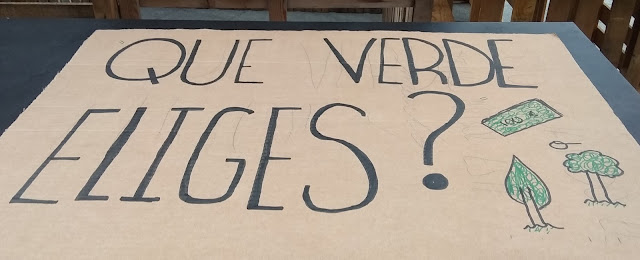 QUE VERDE
ELIGES?
o